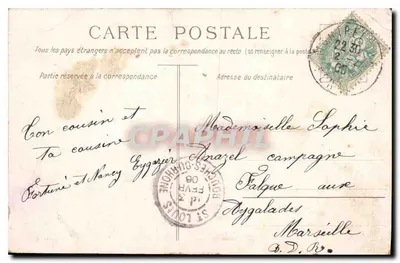 CARTE POSTALE
Tous les pays étrangers n'acceptent pas la correspondance au recto (se renseigner à la poste)
Partie réservée à la correspondance
Adresse du destinataire
Ton cousin et
ta cousine
Fortuné et Nancy
Mademoiselle Sophie
campagne
Falque aux
Aygalades
Marseille
B. D. R.
CPAPHIL
ST LOUIS
BOUCHES-DU-RHONE
FEVR
08